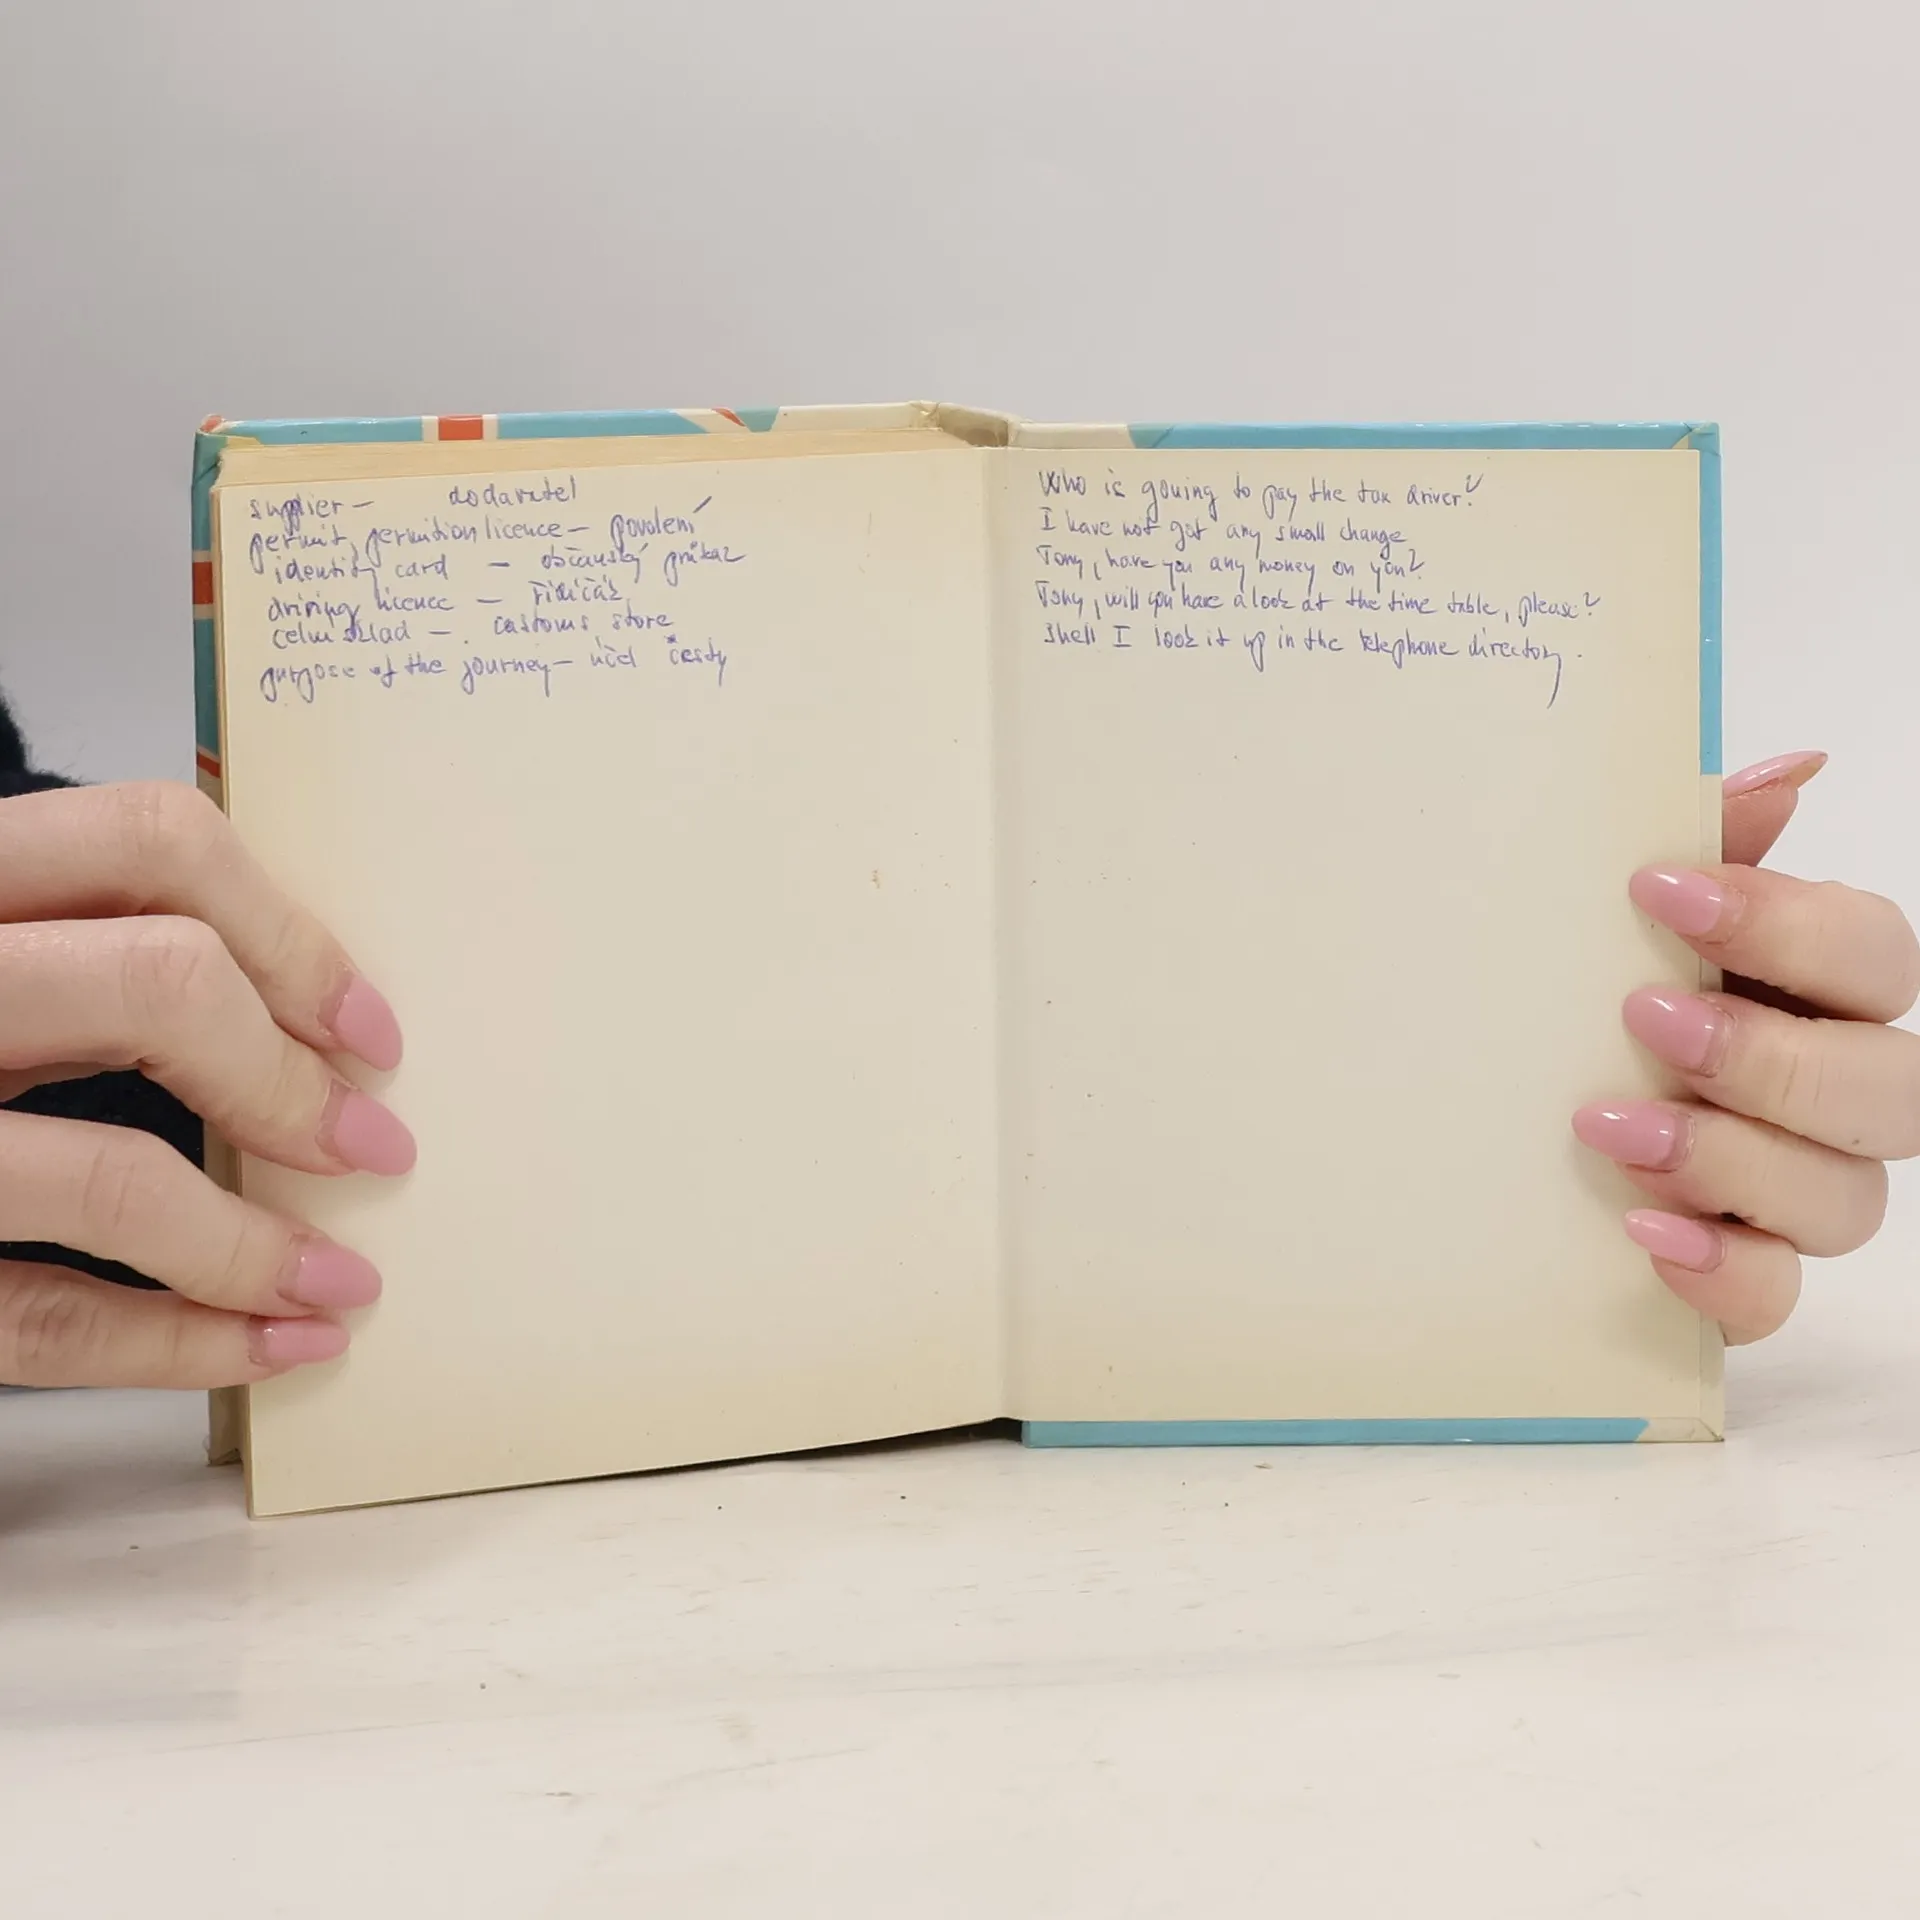 supplier – dodavatel
permit, permition licence – povolení
identity card – občanský průkaz
driving licence – řidičák
celní sklad – customs store
purpose of the journey – účel cesty
Who is gouing to pay the tax driver?
I have not got any small change
Tony, have you any money on you?
Tony, will you have a look at the time table, please?
Shell I look it up in the telephone directory.